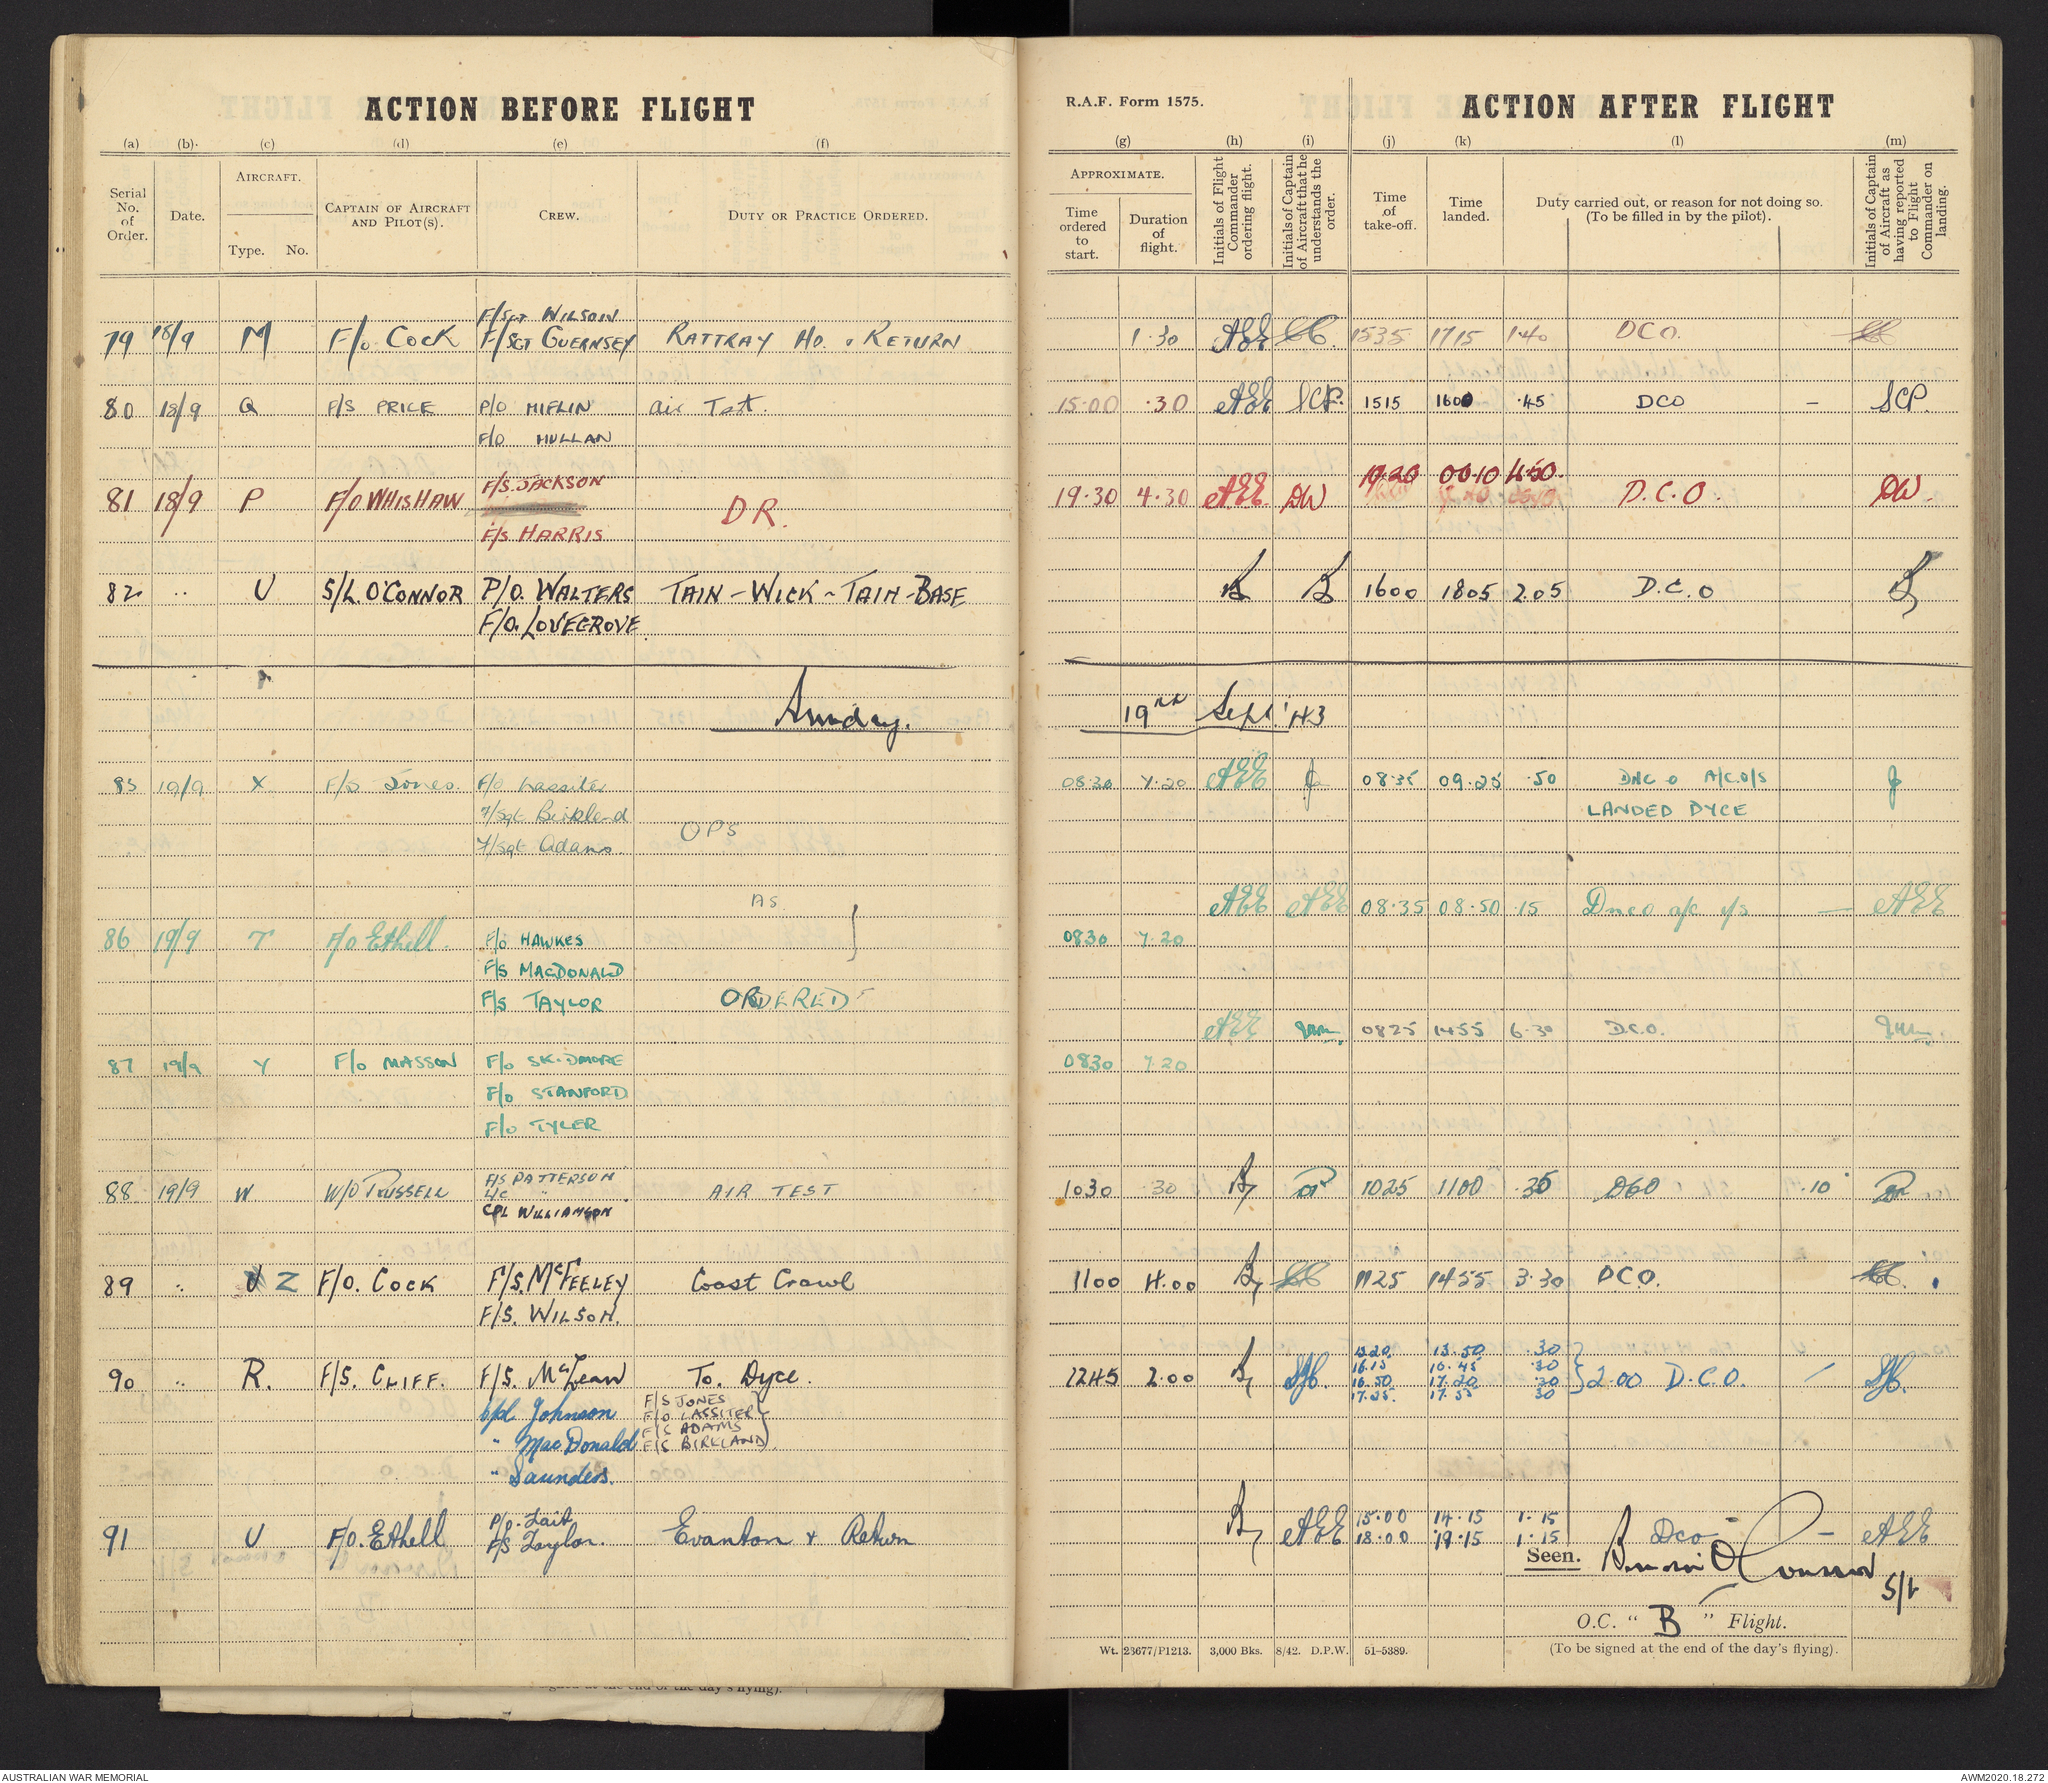 ACTION BEFORE FLIGHT
(a) (b) (c) (d) (e) (f)
Serial No. of Order. Date. AIRCRAFT. Type. No. CAPTAIN OF AIRCRAFT AND PILOT(S). CREW. DUTY OR PRACTICE ORDERED.
F/SGT WILSON
79 18/9 M F/O COCK F/SGT GUERNSEY RATTRAY HD. & RETURN
80 18/9 Q F/S PRICE P/O MIFLIN air Test
F/O MULLAN
F/S. JACKSON
81 18/9 P F/O WHISHAW D R.
F/S HARRIS
82 .. U S/L. O'CONNOR P/O. WALTERS TAIN - WICK - TAIN - BASE
F/O. LOVEGROVE
Sunday.
85 19/9 X F/S Jones F/O Lassiter
F/Sgt Birkland
OPS
F/Sgt Adams
AS
86 19/9 T F/O Ethell. F/O HAWKES
F/S MACDONALD
F/S TAYLOR ORDERED
87 19/9 Y F/O MASSON F/O SKIDMORE
F/O STANFORD
F/O TYLER
88 19/9 W W/O TRUSSELL F/S PATTERSON AIR TEST
L/C "
CPL WILLIAMSON
89 .. Z F/O. COCK F/S. McFEELEY Coast Crawl
F/S. WILSON.
90 .. R. F/S. CLIFF. F/S. McLean To. Dyce.
Cpl. Johnson F/S JONES
F/O LASSITER
" MacDonald F/S ADAMS
F/S BIRKLAND
" Saunders.
91 U F/O. Ethell P/O. Tait Evanton & Return
F/S Taylor.
R.A.F. Form 1575. ACTION AFTER FLIGHT
(g) (h) (i) (j) (k) (l) (m)
APPROXIMATE.
Time ordered to start. Duration of flight. Initials of Flight Commander ordering flight. Initials of Captain of Aircraft that he understands the order. Time of take-off. Time landed. Duty carried out, or reason for not doing so. (To be filled in by the pilot). Initials of Captain of Aircraft as having reported to Flight Commander on landing.
1.30 AEE 1535 1715 1.40 DCO.
15.00 .30 AEE SCP. 1515 1600 .45 DCO — SCP.
19.20 00.10 4.50
19.30 4.30 AEE DW D.C.O. DW.
1600 1805 2.05 D.C.O
19th Sept' 43
08.30 7.20 AEE 08.35 09.25 .50 DNCO A/C.O/S
LANDED DYCE
AEE AEE 08.35 08.50 .15 Dnco a/c u/s — AEE
0830 7.20
AEE 0825 1455 6.30 D.C.O.
0830 7.20
1030 .30 1025 1100 .35 DCO .10
1100 4.00 1125 1455 3.30 DCO.
1320 13.50 .30
16.15 16.45 .30
1245 2.00 16.50 17.20 .30 2.00 D.C.O.
17.25 17.55 30
15.00 14.15 1.15
AEE 18.00 19.15 1.15 Dco — AEE
Seen. O'Connor
S/L
O.C. " B " Flight.
Wt. 23677/P1213. 3,000 Bks. 8/42. D.P.W. 51-5389. (To be signed at the end of the day's flying).
AUSTRALIAN WAR MEMORIAL AWM2020.18.272